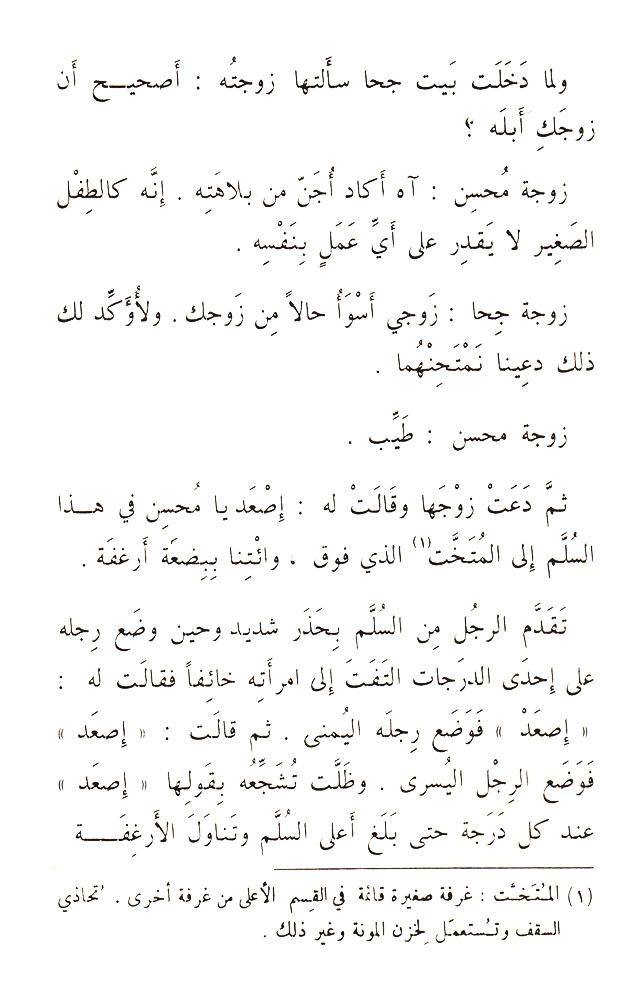 ولما دَخَلَت بَيت جحا سأَلتها زوجتُه : أَصحيح أَن
زوجَكِ أَبلَه ؟
زوجة مُحسِن : آه أَكاد أُجَنّ من بلاهَتِه . إِنَّه كالطِفْل
الصَغِير لا يَقدِر على أَيِّ عَمَلٍ بِنَفْسِه .
زوجة جِحا : زَوجي أَسْوَأُ حالاً مِن زَوجك . ولأُؤَكِّد لك
ذلك دعِينا نَمْتَحِنْهُما .
زوجة محسن : طَيِّب .
ثمَّ دَعَتْ زوْجَها وقَالَتْ له : إِصْعَد يا مُحسِن في هذا
السُلَّم إِلى المُتَخَّت(١) الذي فوق ، وائْتِنا بِبِضعَة أَرغفَة .
تَقَدَّم الرجُل مِن السُلَّم بِحَذَر شديد وحين وضَع رِجله
على إِحدَى الدرَجات التَفَتَ إِلى امرأَتِه خائِفاً فقالَت له :
« إِصعَدْ » فَوَضَع رِجلَه اليُمنى . ثم قالَت : « إِصعَد »
فَوَضَع الرِجْل اليُسرى . وظَلَّت تُشَجِّعُه بِقَولِها « إِصعَد »
عند كل دَرَجة حتى بَلَغ أَعلى السُلَّم وتَناوَلَ الأَرغِفَة
(١) المُتَخَّت : غرفة صغيرة قائمة في القِسم الأعلى من غرفة أخرى . تُحاذي
السقف وتُستعمَل لِخزن المونة وغير ذلك .